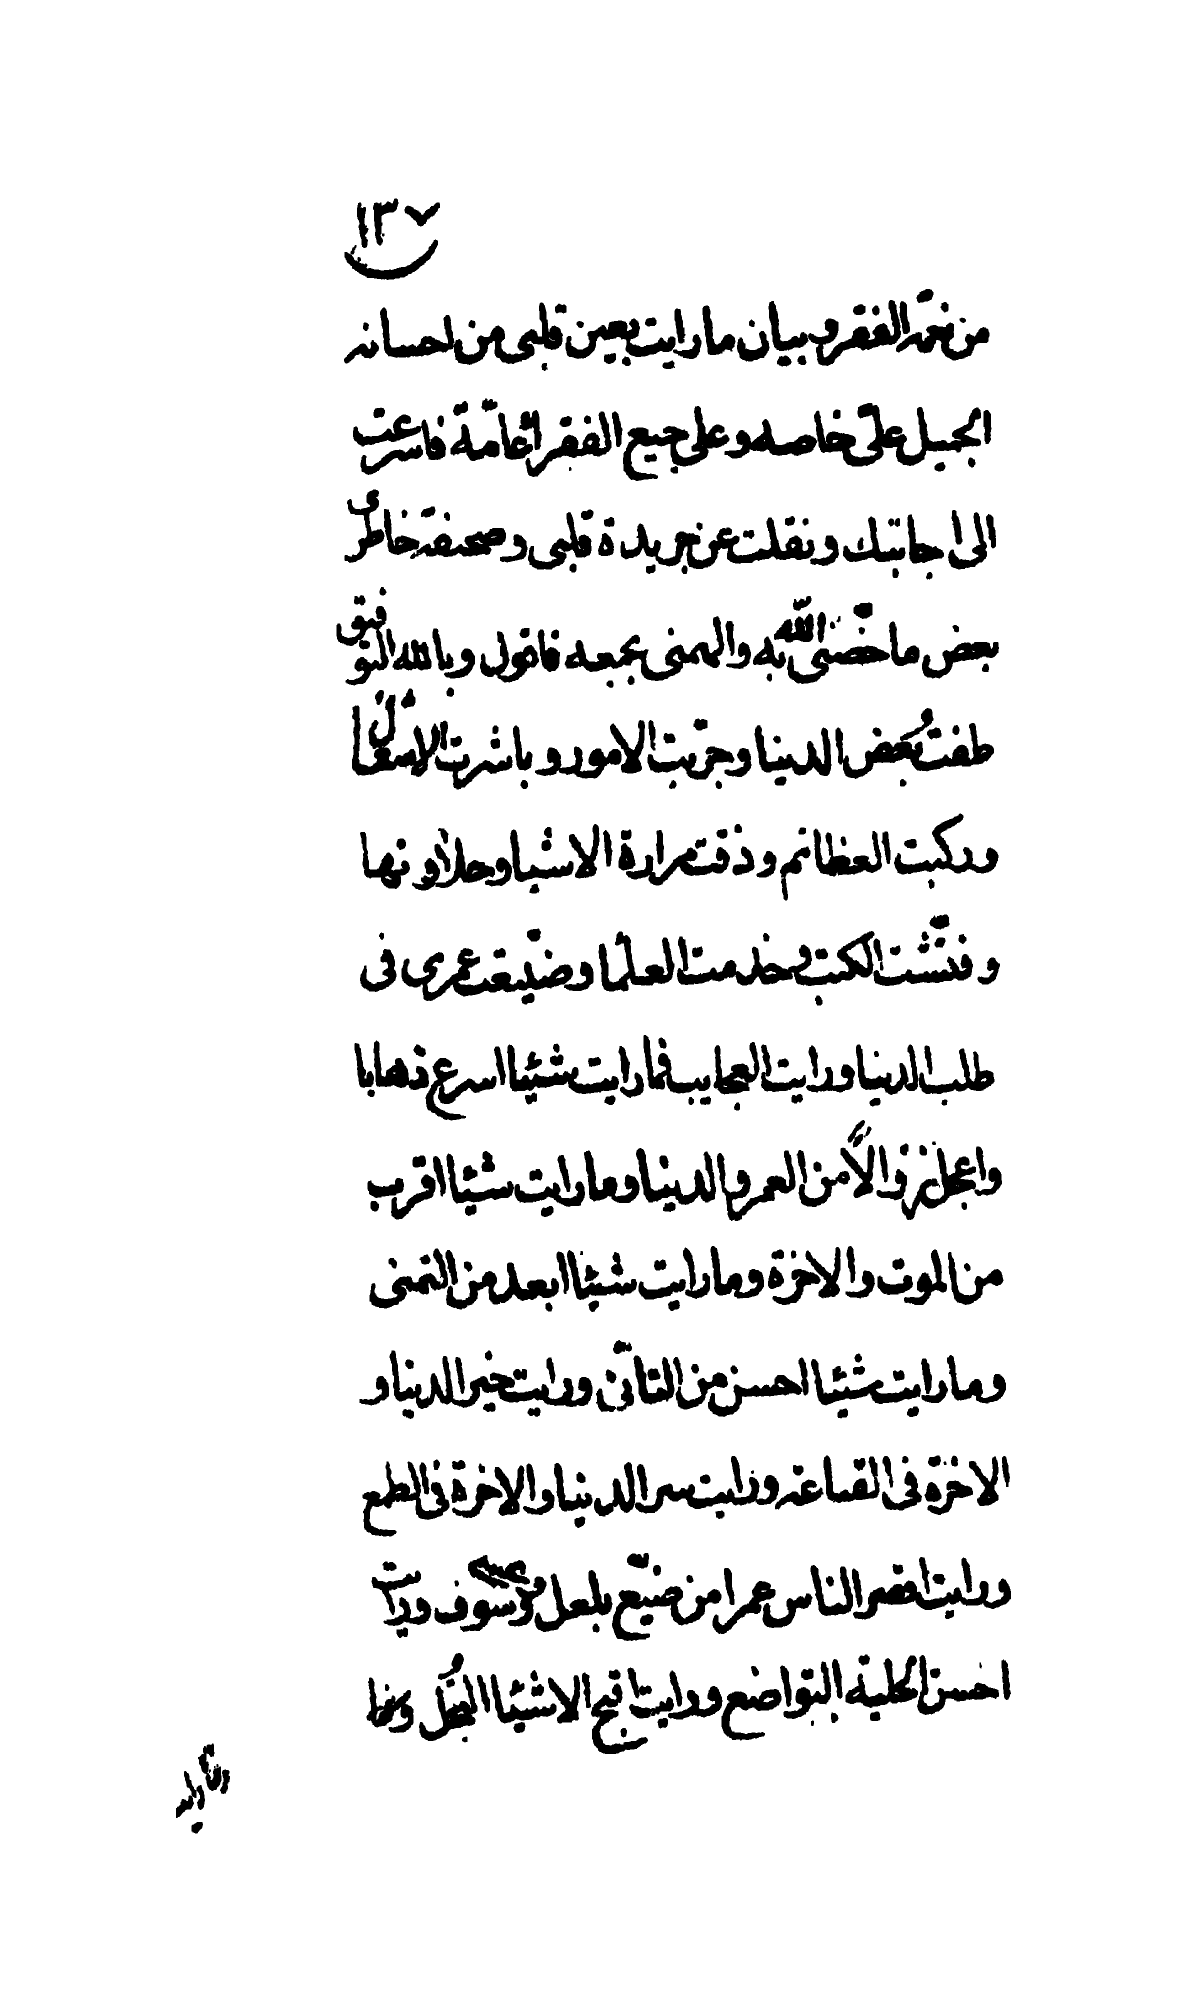 ١٣٧
من نعمة الفقر وبيان ما رايت بعين قلبى من احسانه
الجميل علىّ خاصه وعلى جميع الفقرأ عامّة فاسرعت
الى اجابتك ونقلت عن جريدة قلبى وصحيفة خاطرى
بعض ما خصّنى اللّه به والهمنى بجمعه فاقول وبالله التوفيق
طفت بعض الدنيا وجرّبت الامور وباشرت الاشغال
وركبت العظائم وذقت مرارة الاشيا وحلاوتها
وفتّشت الكتب وخدمت العلمأ وضيّعت عمرى فى
طلب الدنيا ورايت العجايب فما رايت شئيا اسرع ذهابا
واعجل زوالاً من العمر والدنيا وما رايت شئيا اقرب
من الموت والاخرة وما رايت شئيا ابعد من التمنى
وما رايت شئيا احسن من التأنّى ورايت خير الدنيا و
الاخرة فى القناعة ورايت سر الدنيا والاخرة فى الطمع
ورايت اقصر الناس عمرا من ضيّع بلعل وسوف ورايت
احسن الحلية التواضع ورايت اقبح الاشئيا البخل وما
رايت